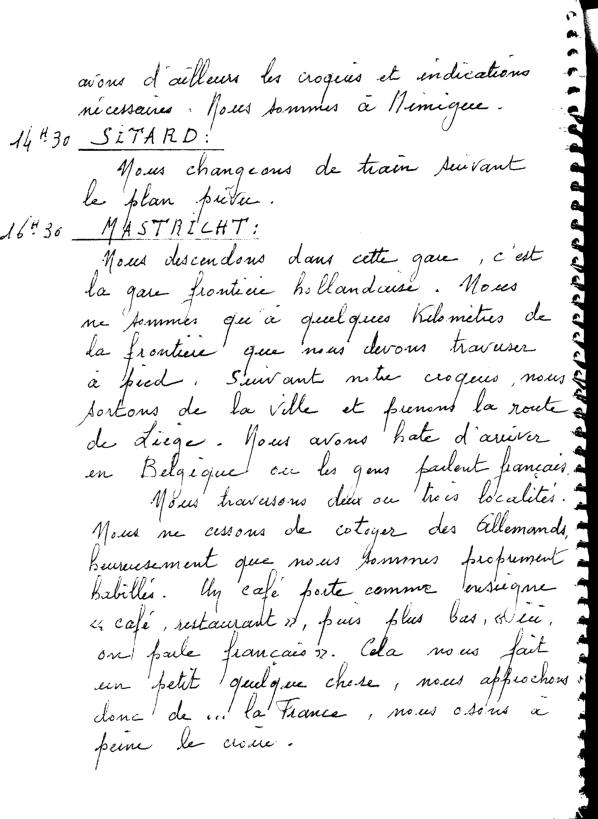 avons d'ailleurs les croquis et indications
nécessaires. Nous sommes à Nimigue.
14H30 SITARD:
Nous changeons de train suivant
le plan prévu.
16H30 MASTRICHT:
Nous descendons dans cette gare, c'est
la gare frontière hollandaise. Nous
ne sommes qu'à quelques Kilomètres de
la frontière que nous devons traverser
à pied. Suivant notre croquis, nous
sortons de la ville et prenons la route
de Liège. Nous avons hate d'arriver
en Belgique ou les gens parlent français.
Nous traversons deux ou trois localités.
Nous ne cessons de cotoyer des Allemands,
heureusement que nous sommes proprement
habillés. Un café porte comme enseigne
« café, restaurant », puis plus bas, « ici,
on parle français ». Cela nous fait
un petit quelque chose, nous approchons
donc de ... la France, nous osons à
peine le croire.